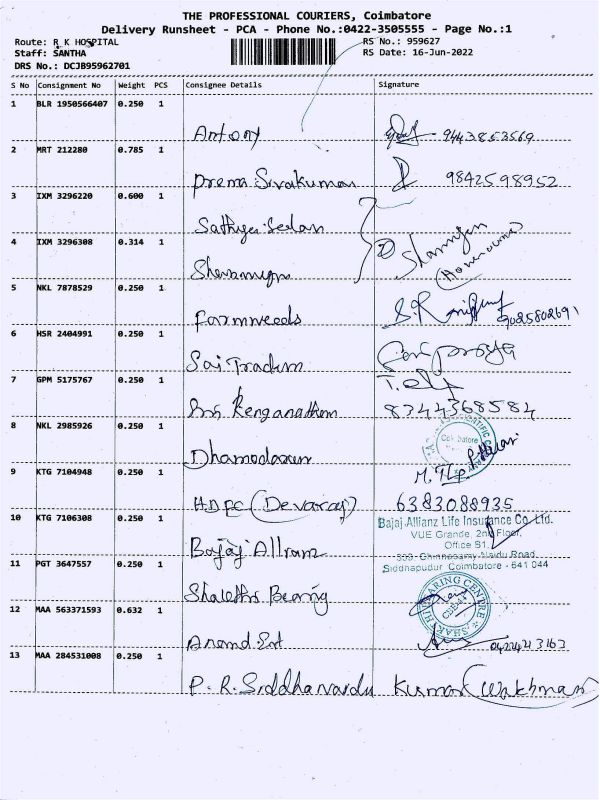 THE PROFESSIONAL COURIERS, Coimbatore
Delivery Runsheet - PCA - Phone No.:0422-3505555 - Page No.:1
Route: R K HOSPITAL
RS No.: 959627
Staff: SANTHA
RS Date: 16-Jun-2022
DRS No.: DCJB95962701
S No Consignment No Weight PCS Consignee Details Signature
1 BLR 1950566407 0.250 1
Antony 9443853569
2 MRT 212280 0.785 1
Prema Sivakumar 9842598952
3 IXM 3296220 0.600 1
Sathya
4 IXM 3296308 0.314 1
5 NKL 7878529 0.250 1
Farmweeds 9025802691
6 HSR 2404991 0.250 1
Sai Traders
7 GPM 5175767 0.250 1
Renganathan 8344368584
8 NKL 2985926 0.250 1
Coimbatore
Dhamodaran
9 KTG 7104948 0.250 1
HDFC (Devaraj) 6383088935
10 KTG 7106308 0.250 1
Bajaj Allianz Life Insurance Co. Ltd.
VUE Grande, 2nd Floor,
Office B1,
Bajaj Allianz
Chinnasamy Naidu Road,
11 PGT 3647557 0.250 1
Siddhapudur Coimbatore - 641 044
Bearing
HEARING CENTRE
12 MAA 563371593 0.632 1
Anand Ent
13 MAA 284531008 0.250 1
P. R. Siddhanaidu Kumar